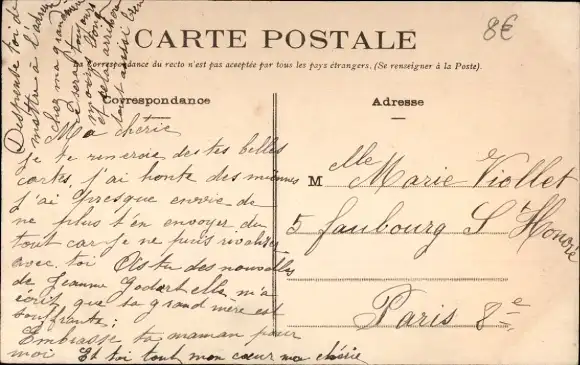 8€
CARTE POSTALE
La Correspondance du recto n'est pas acceptée par tous les pays étrangers. (Se renseigner à la Poste).
Correspondance
Adresse
Ma chérie
Je te remercie de tes belles
cartes j'ai honte des miennes
j'ai presque envie de
ne plus t'en envoyer du
tout car je ne puis rivaliser
avec toi As tu des nouvelles
de Jeanne Godart elle m'a
écrit que ta grand mère est
souffrante;
Embrasse ta maman pour
moi Et toi tout mon cœur ma chérie
mettre à l'adresse
chez ma grand mère
ce sera toujours
moins long
et cela arrivera
tout aussi bien
Melle Marie Viollet
5 faubourg St Honoré
Paris 8e